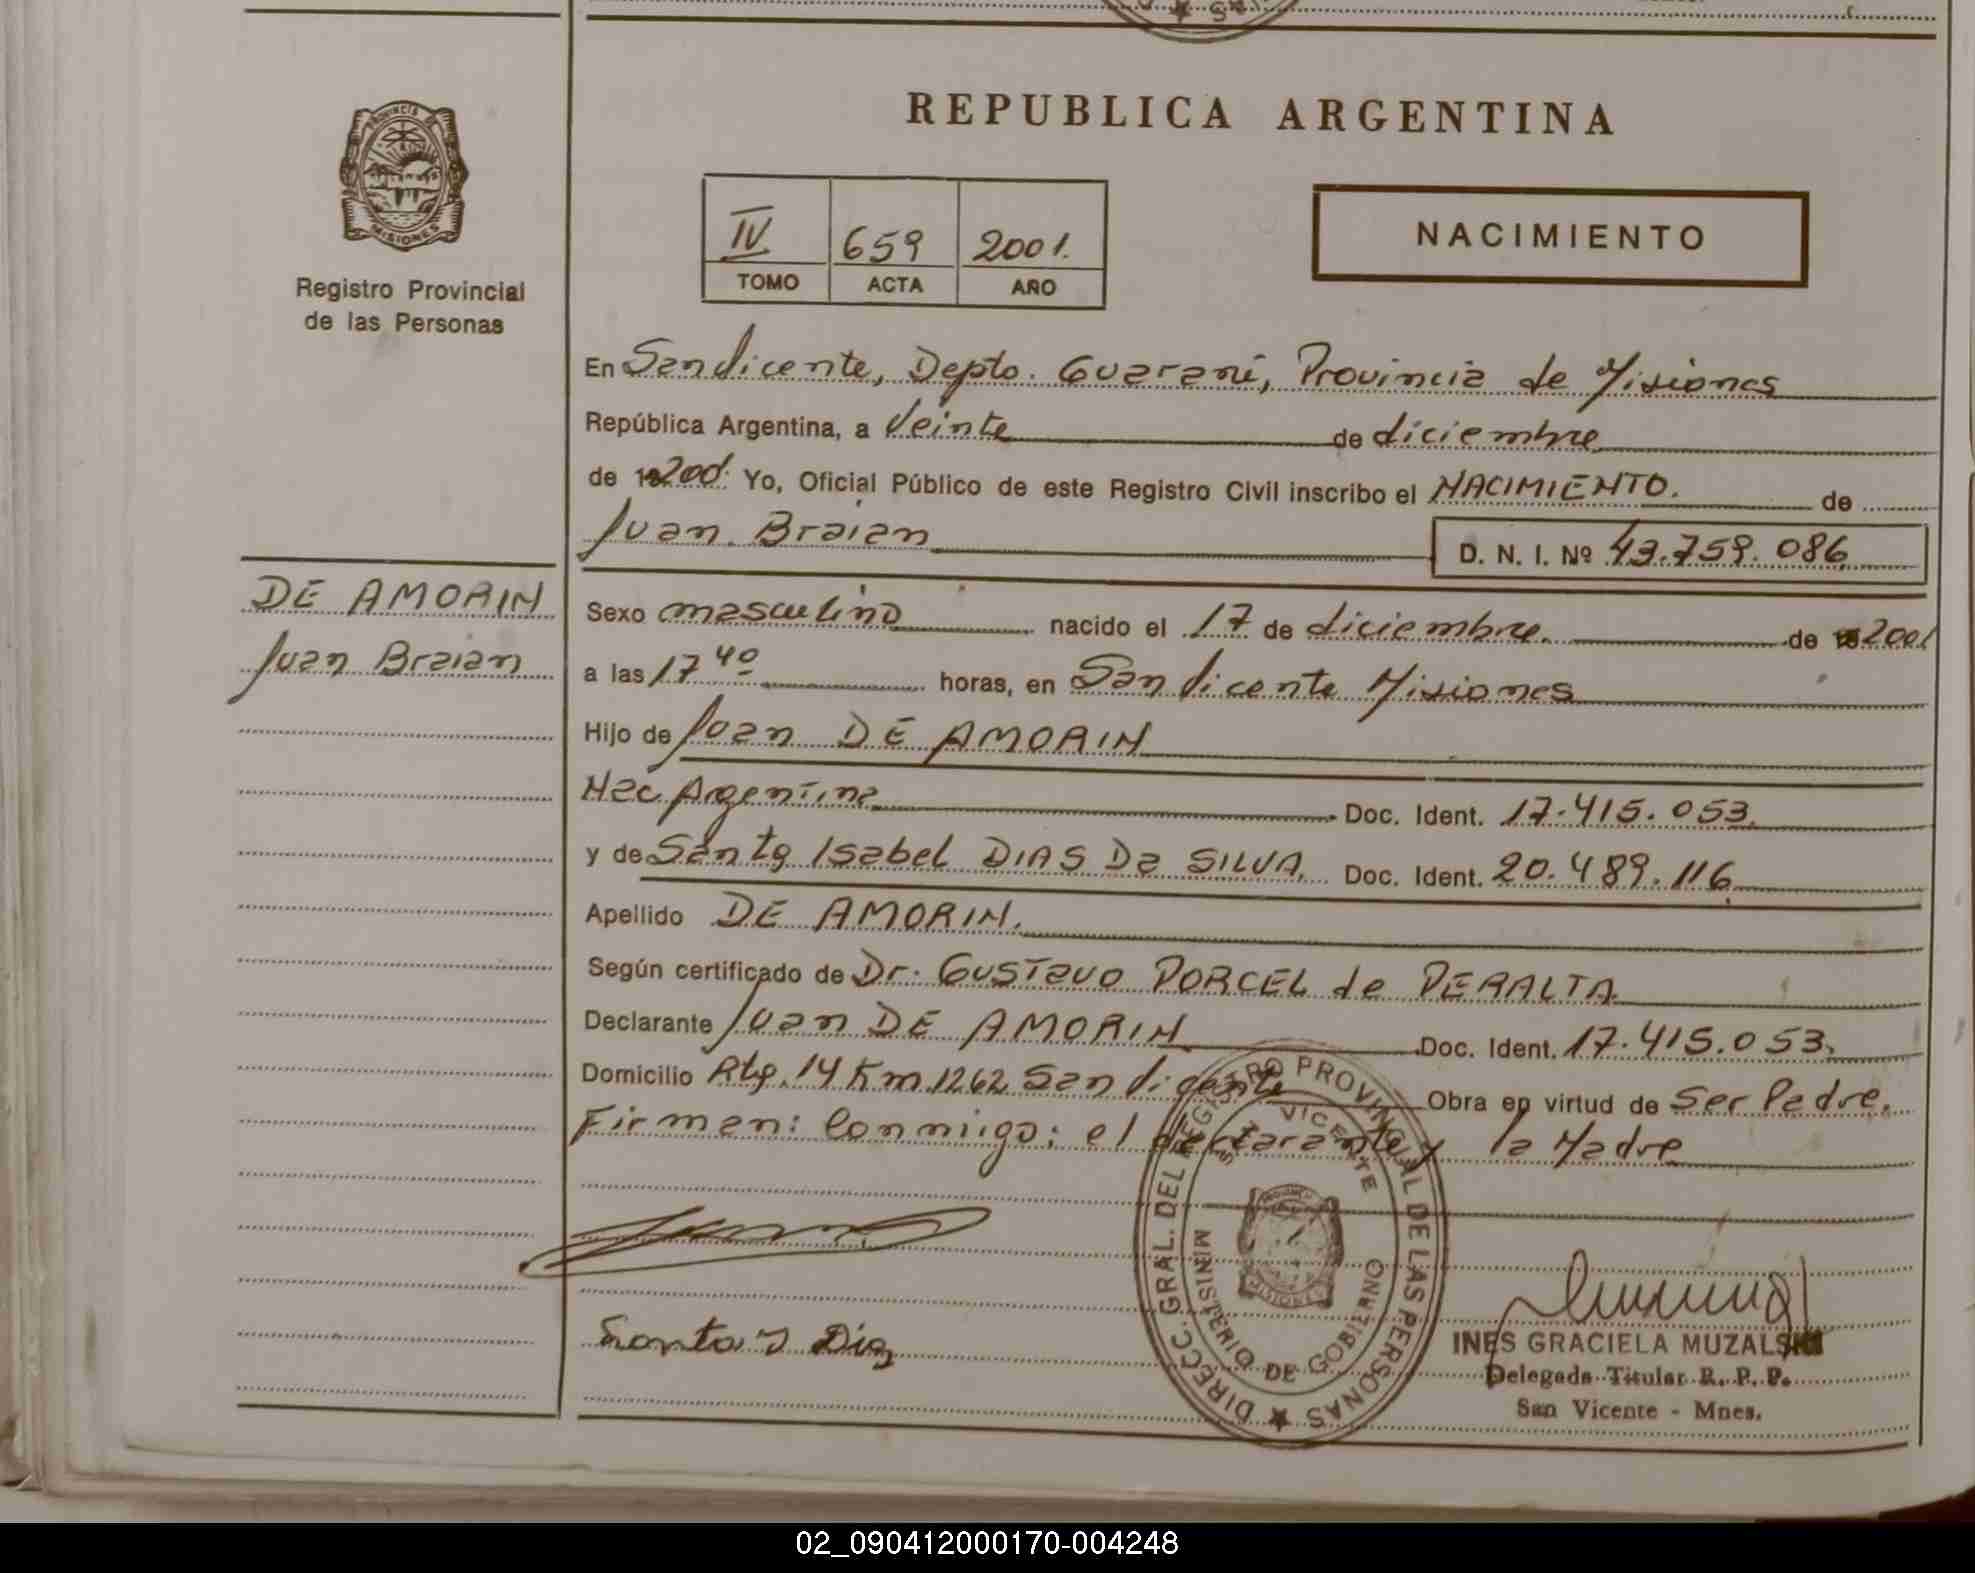 REPUBLICA ARGENTINA
Provincia de
MISIONES
Registro Provincial
de las Personas
IV 659 2001.
TOMO ACTA AÑO
NACIMIENTO
En San Vicente, Depto. Guaraní, Provincia de Misiones
República Argentina, a Veinte de diciembre
de 19 2001. Yo, Oficial Público de este Registro Civil inscribo el NACIMIENTO. de
Juan Braian D. N. I. Nº 43.759.086
DE AMORIN
Juan Braian
Sexo masculino nacido el 17 de diciembre. de 19 2001
a las 17 40 horas, en San Vicente Misiones
Hijo de Juan DE AMORIN
Nac Argentina Doc. Ident. 17.415.053.
y de Santa Isabel DIAS Da SILVA. Doc. Ident. 20.489.116
Apellido DE AMORIN.
Según certificado de Dr. GUSTavo PORCEL de PERALTA
Declarante Juan DE AMORIN Doc. Ident. 17.415.053.
Domicilio Rta. 14 Km 1262 San Vicente Obra en virtud de Ser Padre.
Firman: Conmigo: el declarante y la Madre
DIRECC. GRAL. DEL REGISTRO PROVINCIAL DE LAS PERSONAS
SAN VICENTE
MINISTERIO DE GOBIERNO
MISIONES
Santa I Dias
INES GRACIELA MUZALSKI
Delegada Titular R. P. P.
San Vicente - Mnes.
02_090412000170-004248